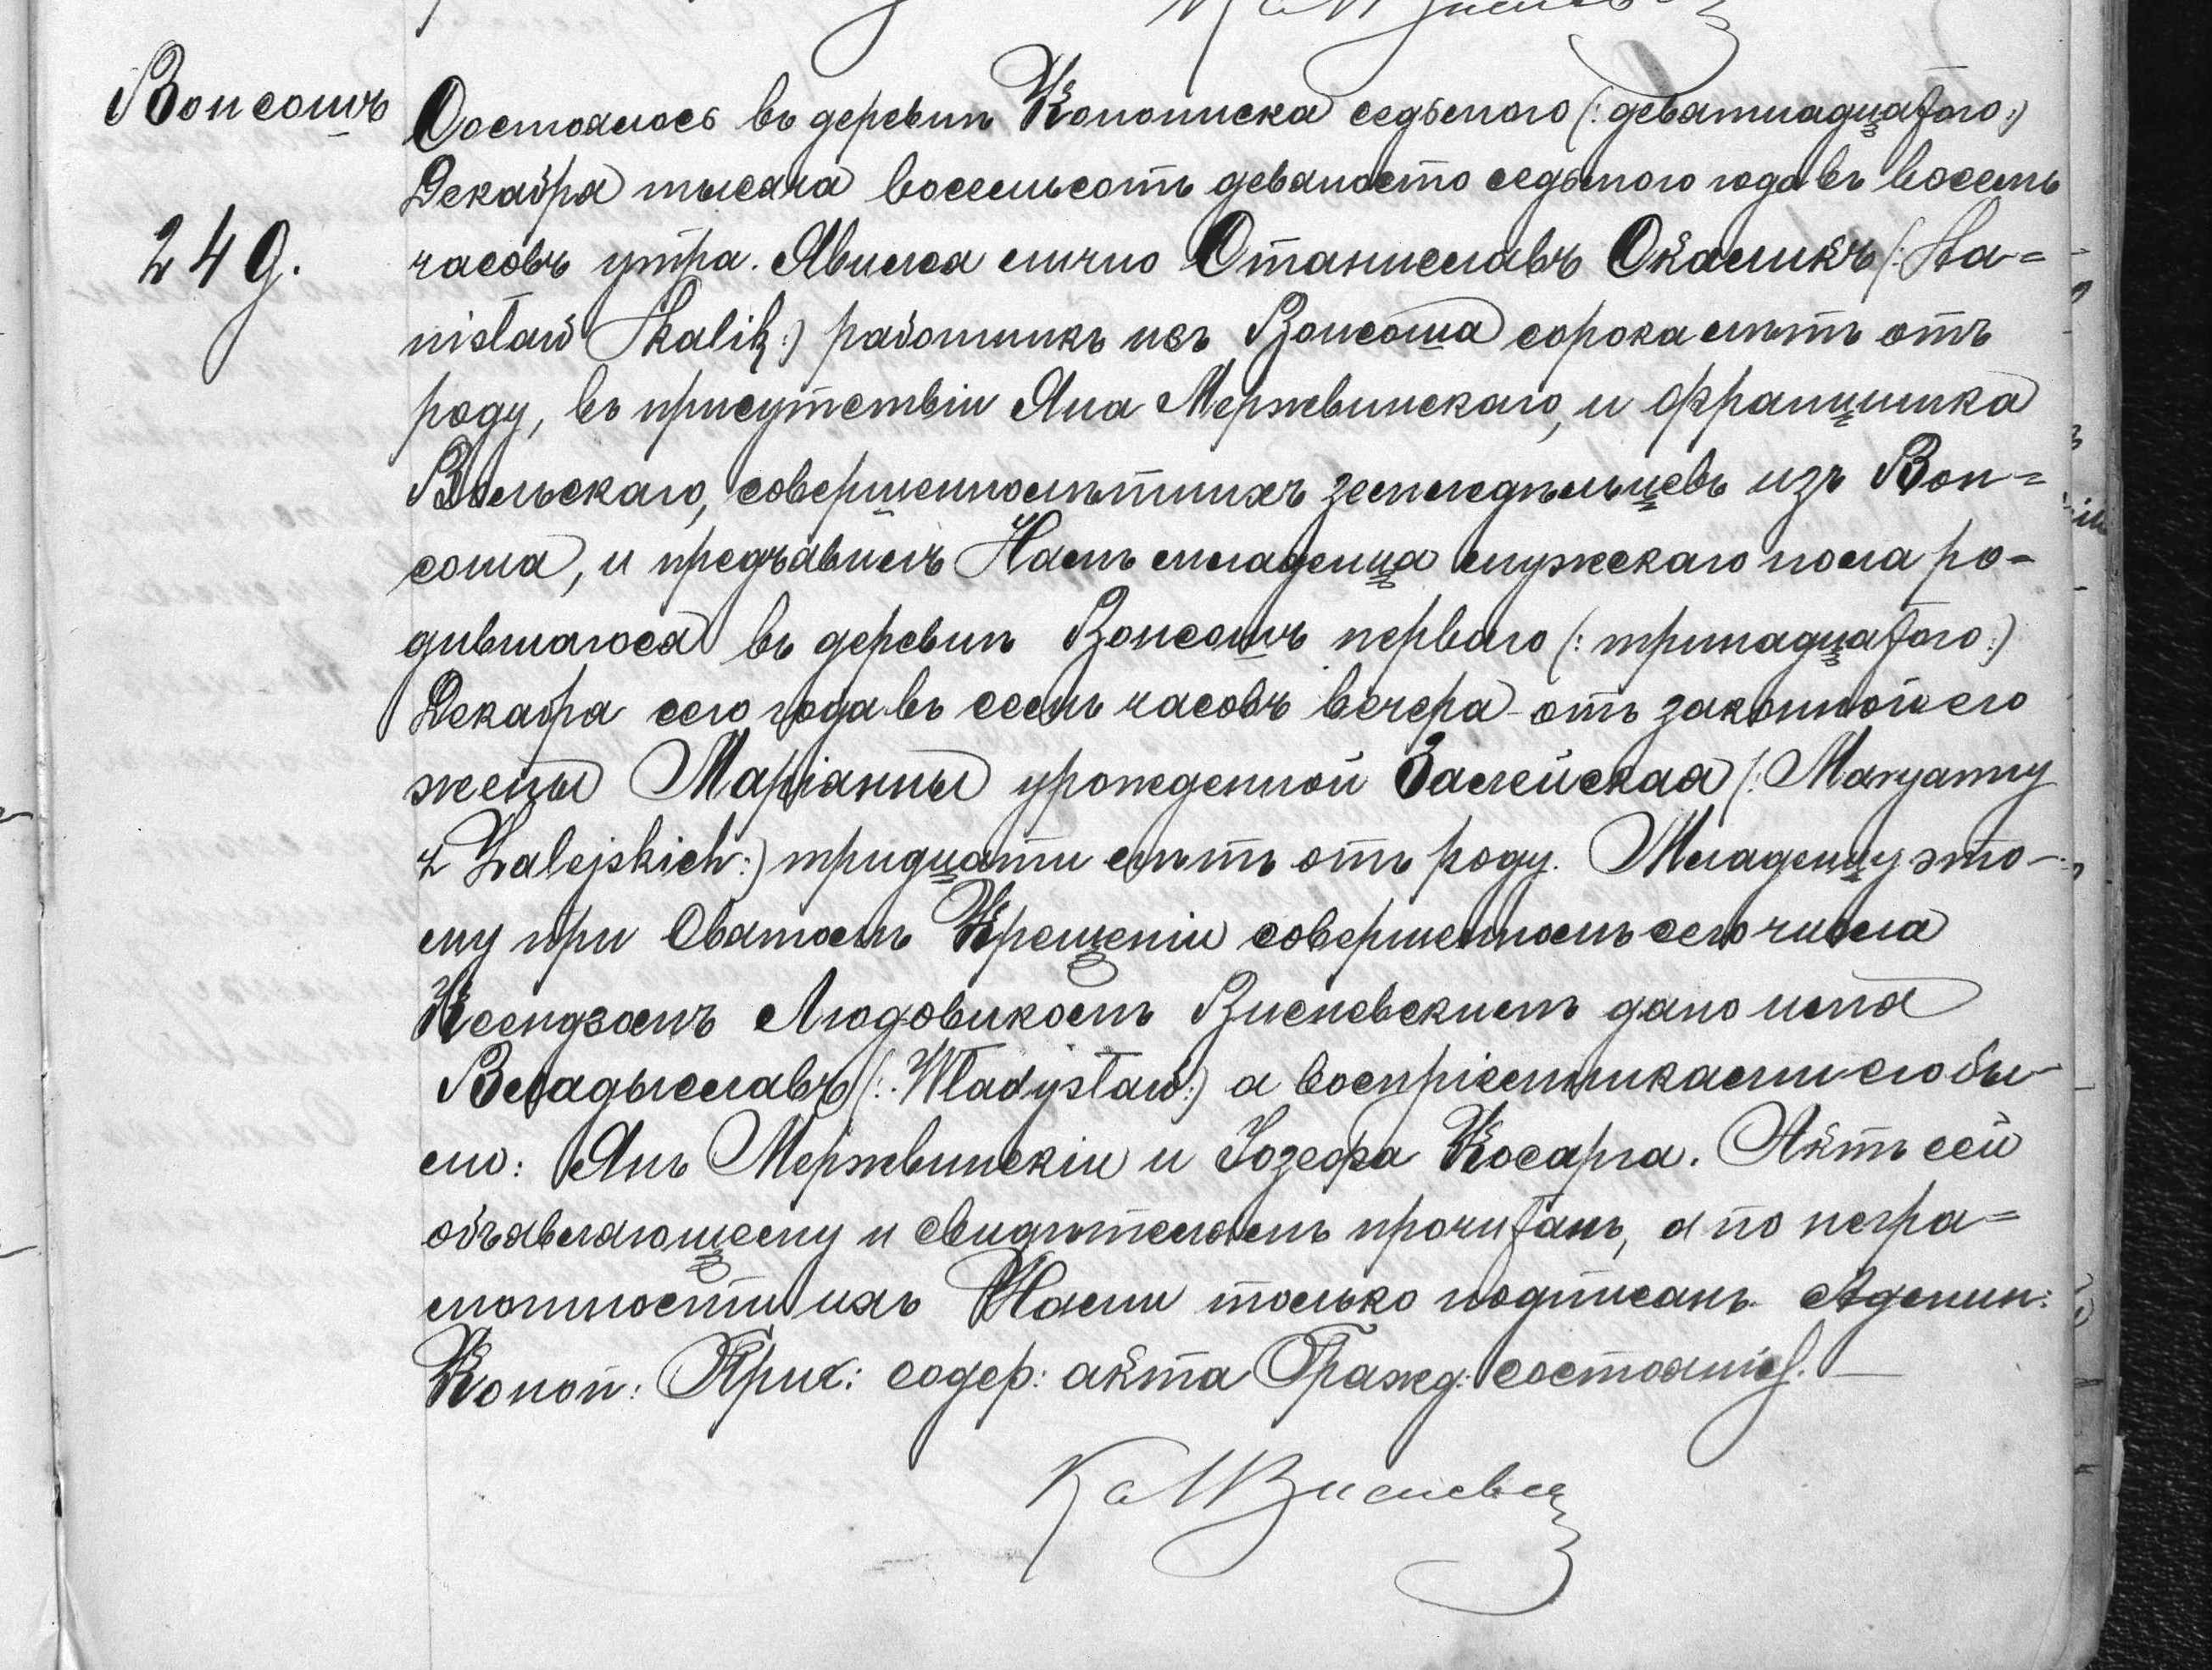 Вонсошъ
249.
Состоялось въ деревнѣ Конописка седьмого (: девятнадцатого :)
Декабря тысяча восемьсотъ девяносто седьмого года въ восемь
часовъ утра. Явился лично Станиславъ Скаликъ (: Sta=
nisław Skalik :) работникъ изъ Вонсоша сорока лѣтъ отъ
роду, въ присутствіи Яна Мержвинскаго, и Францишка
Вольскаго, совершеннолѣтнихъ земледѣльцевъ изъ Вон=
соша, и предъявилъ Намъ младенца мужескаго пола ро-
дившагося въ деревнѣ Вонсошъ перваго (: тринадцатого :)
Декабря сего года въ семь часовъ вечера отъ законной его
жены Маріанны урожденной Залейская (: Maryanny
z Zalejskich :) тридцати лѣтъ отъ роду. Младенцу это-
му при Святомъ Крещеніи совершенномъ сего числа
Ксендзомъ Людовикомъ Висневскимъ дано имя
Владыславъ (: Władysław :) а воспріемниками его бы-
ли: Янъ Мержвинскіи и Іозефа Косарга. Актъ сей
объявляющему и свидѣтелямъ прочитанъ, а по негра=
мотности ихъ Нами только подписанъ. Админ:
Коноп: Прих: содер: акта Гражд: состоянія. —
Кс Л Висневск